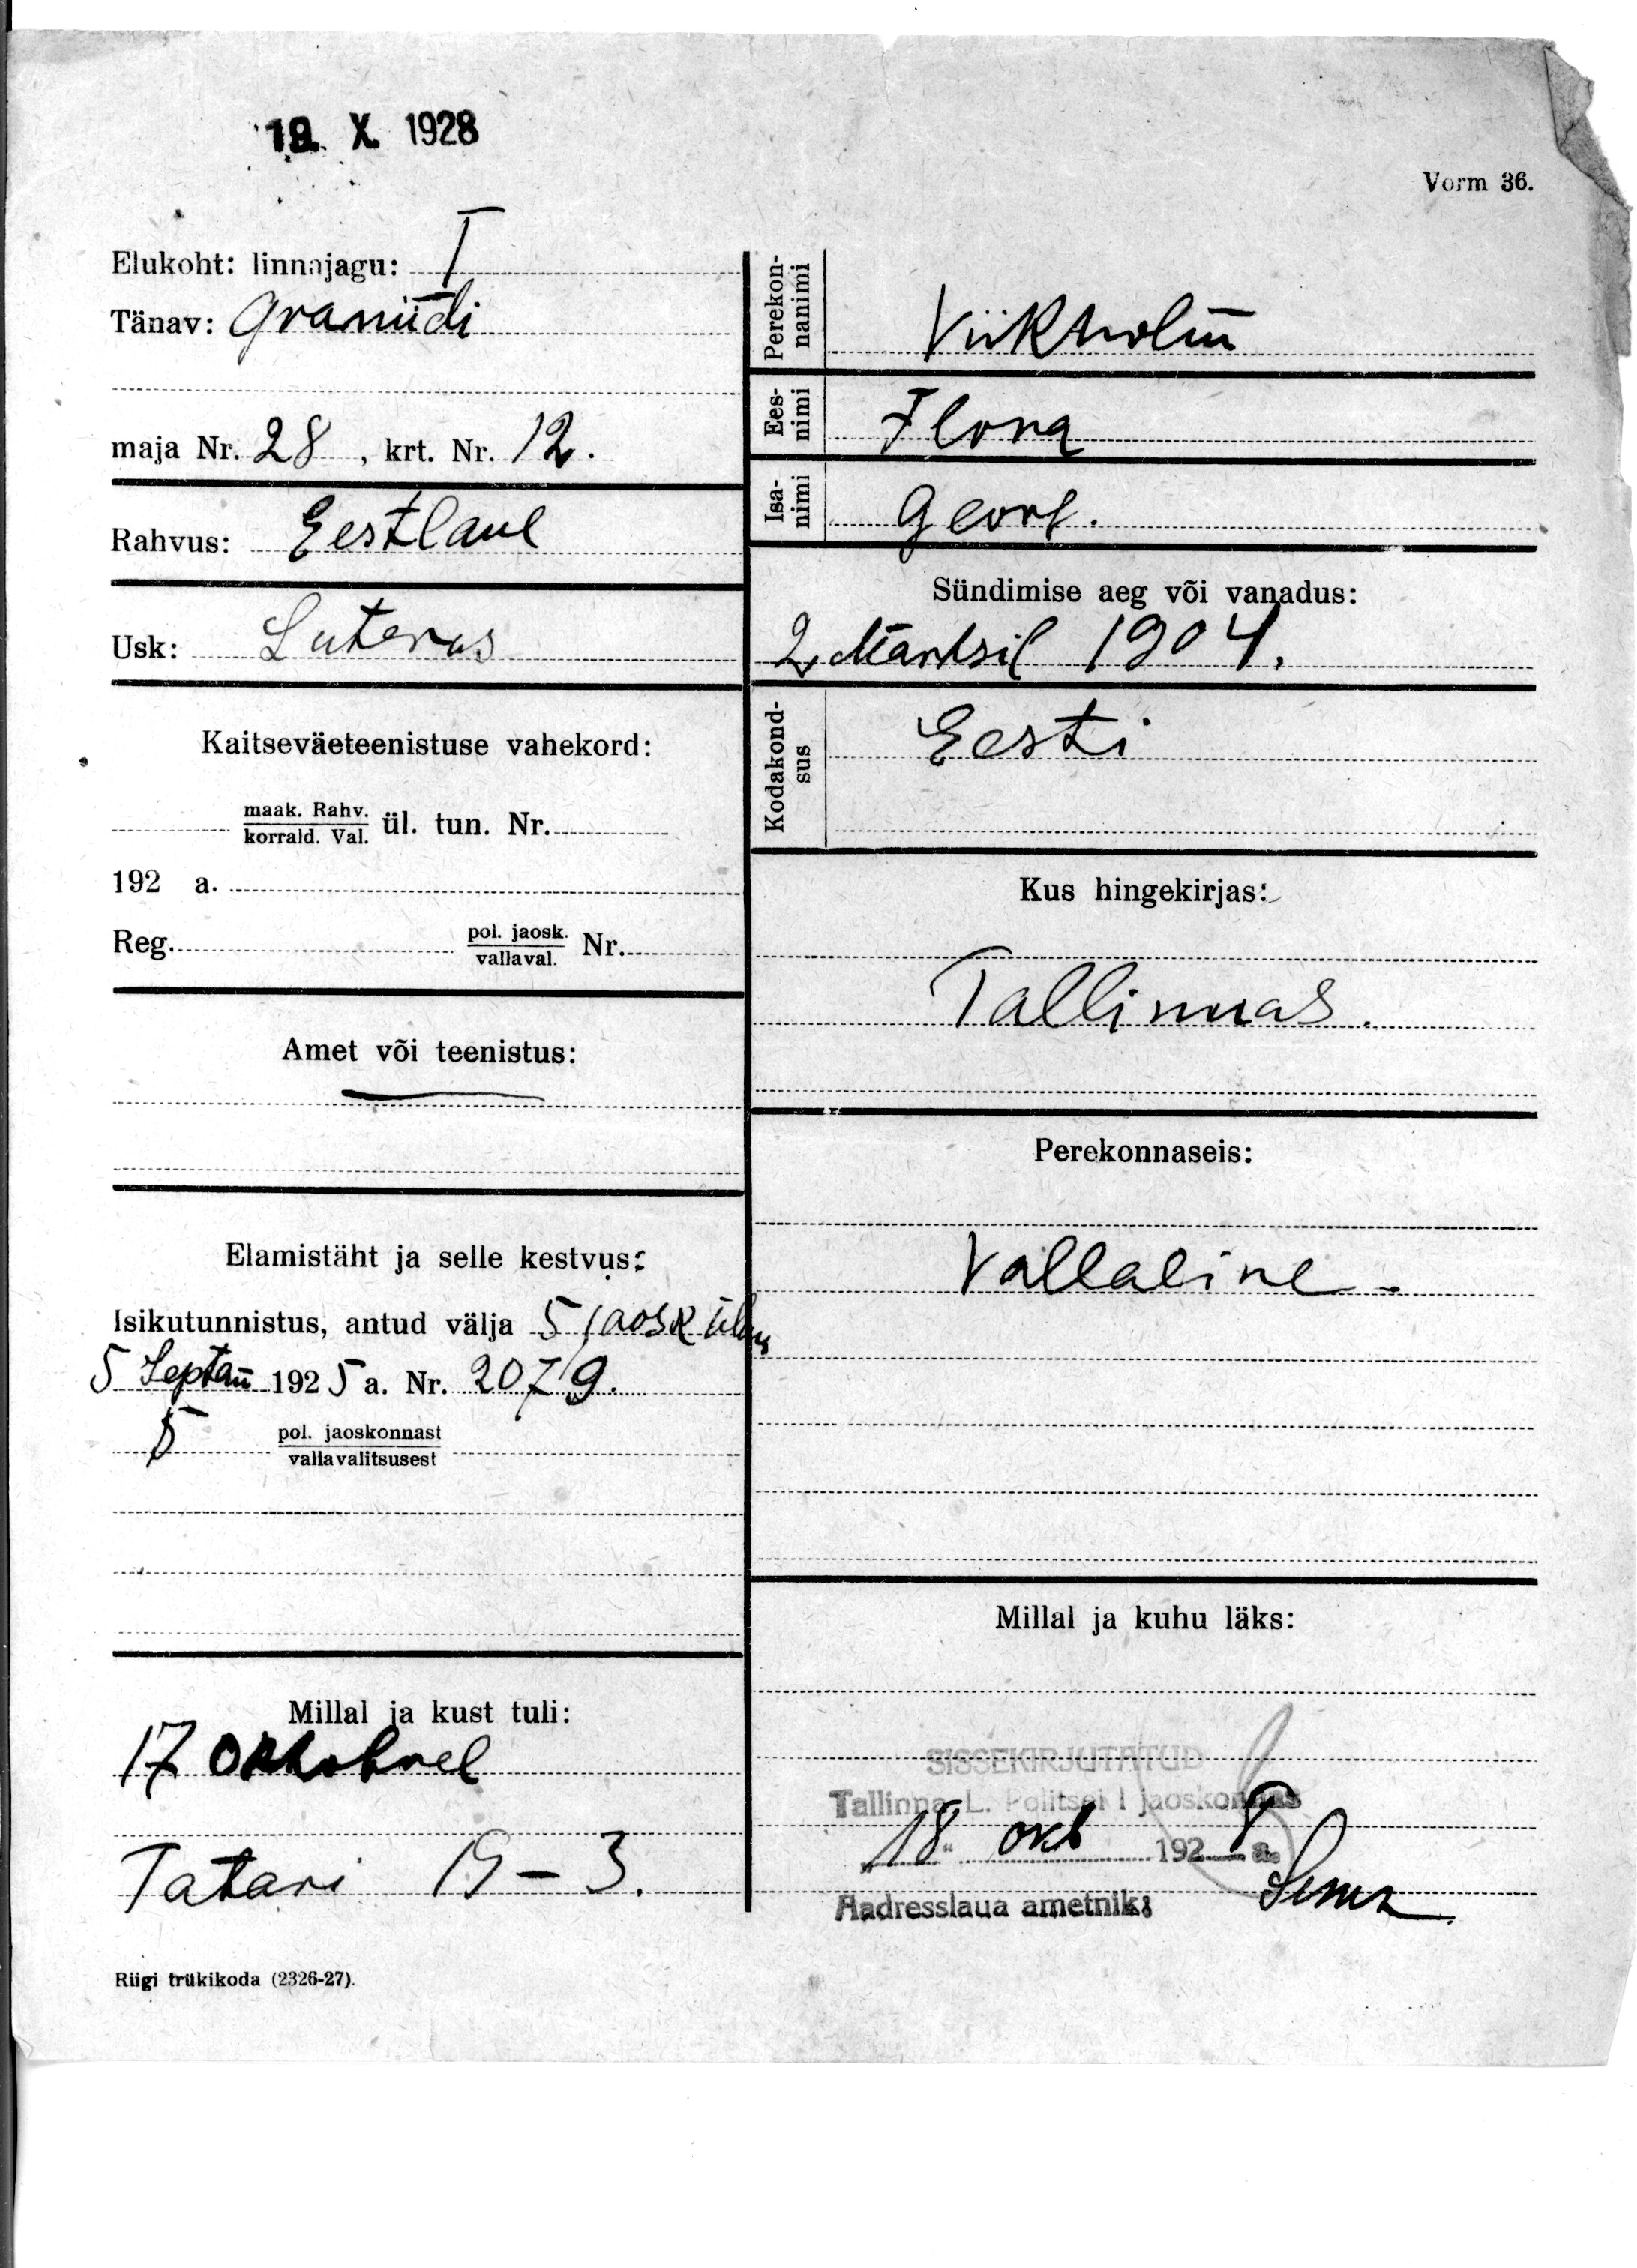 19. X. 1928
Vorm 36.
Elukoht: linnajagu: I
Tänav: Graniidi
maja Nr. 28, krt. Nr. 12.
Rahvus: Eestlane
Usk: Luterus
Kaitseväeteenistuse vahekord:
maak. Rahv.
korrald. Val. ül. tun. Nr.
192 a.
Reg. pol. jaosk. Nr.
vallaval.
Amet või teenistus:
Elamistäht ja selle kestvus:
Isikutunnistus, antud välja 5 jaosk
5 Septem̄ 1925 a. Nr. 2079.
5 pol. jaoskonnast
vallavalitsusest
Millal ja kust tuli:
17 Oktobrel
Tatari 19-3.
Riigi trükikoda (2326-27).
Perekon-
nanimi
Viikholm
Ees-
nimi
Flora
Isa-
nimi
Georg.
Sündimise aeg või vanadus:
2 Märtsil 1904.
Kodakond-
sus
Eesti
Kus hingekirjas:
Tallinnas.
Perekonnaseis:
Vallaline.
Millal ja kuhu läks:
SISSEKIRJUTATUD
Tallinna L. Politsei I jaoskonnas
"18" okt 1928 a.
Aadresslaua ametnik: